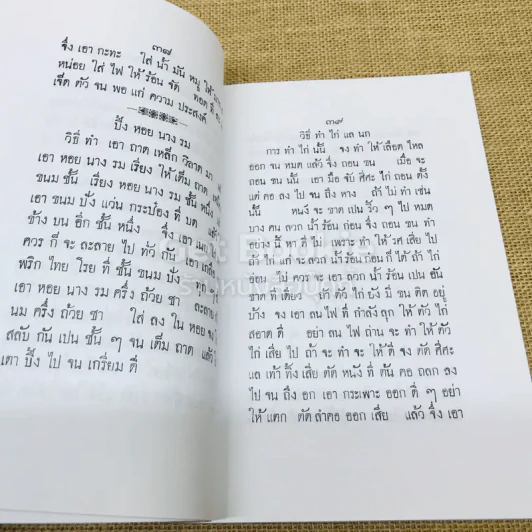 ๓๗
จึ่ง เอา กะทะ ใส่ น้ำ มัน หมู ให้
หน่อย ใส่ ไฟ ให้ ร้อน จัด ทอด
เจ็ด ตัว จน พอ แก่ ความ ประสงค์
ปิ้ง หอย นาง รม
วิธี ทำ เอา ถาด เหล็ก วิลาด มา
เอา หอย นาง รม เรียง ให้ เต็ม ถาด
ขนม ชั้น เรียง หอย นาง รม ชั้น หนึ่ง
เอา ขนม ปัง แว่น กระป๋อง ที่ บด
ข้าง บน อีก ชั้น หนึ่ง จึ่ง เอา เนม
ควร กี่ จะ ละลาย ไป ทั่ว กัน เอา เกลือ
พริก ไทย โรย ที่ ชั้น ขนม ปัง ทุก
เอา หอย นาง รม ครึ่ง ถ้วย ชา ละลาย
นม ครึ่ง ถ้วย ชา ใส่ ลง ใน หอย
สลับ กัน เปน ชั้น ๆ จน เต็ม ถาด แล้ว
เตา ปิ้ง ไป จน เกรียม ดี
๓๙
วิธี ทำ ไก่ แล นก
การ ทำ ไก่ นั้น จง ทำ ให้ เลือด ไหล
ออก จน หมด แล้ว จึ่ง ถอน ขน เมื่อ จะ
ถอน ขน นั้น เอา มือ จับ ศีศะ ไก่ ถอน ตั้ง
แต่ คอ ลง ไป จน ถึง หาง ถ้า ไม่ ทำ เช่น
นั้น หนัง จะ ขาด เปน ริ้ว ๆ ไป หมด
บาง คน ลวก น้ำ ร้อน ก่อน จึ่ง ถอน ขน ทำ
อย่าง นี้ หา ดี ไม่ เพราะ ทำ ให้ รศ เสีย ไป
ถ้า ไก่ แก่ จะ ลวก น้ำ ร้อน ก่อน ก็ ได้ ถ้า ไก่
อ่อน ไม่ ควร จะ เอา ลวก น้ำ ร้อน เลย เปน อัน
ขาด ที เดียว ถ้า ตัว ไก่ ยัง มี ขน ติด อยู่
บ้าง จง เอา ลน ไฟ ที่ กำลัง ลุก ให้ ตัว ไก่
สอาด ดี อย่า ลน ไฟ ถ่าน จะ ทำ ให้ ตัว
ไก่ เสีย ไป ถ้า จะ ทำ จะ ให้ ดี จง ตัด ศีศะ
แล เท้า ทิ้ง เสีย ตัด หนัง ที่ ต้น คอ ถลก ลง
ไป จน ถึง อก เอา กระเพาะ ออก ดี ๆ อย่า
ให้ แตก ตัด ลำคอ ออก เสีย แล้ว จึ่ง เอา